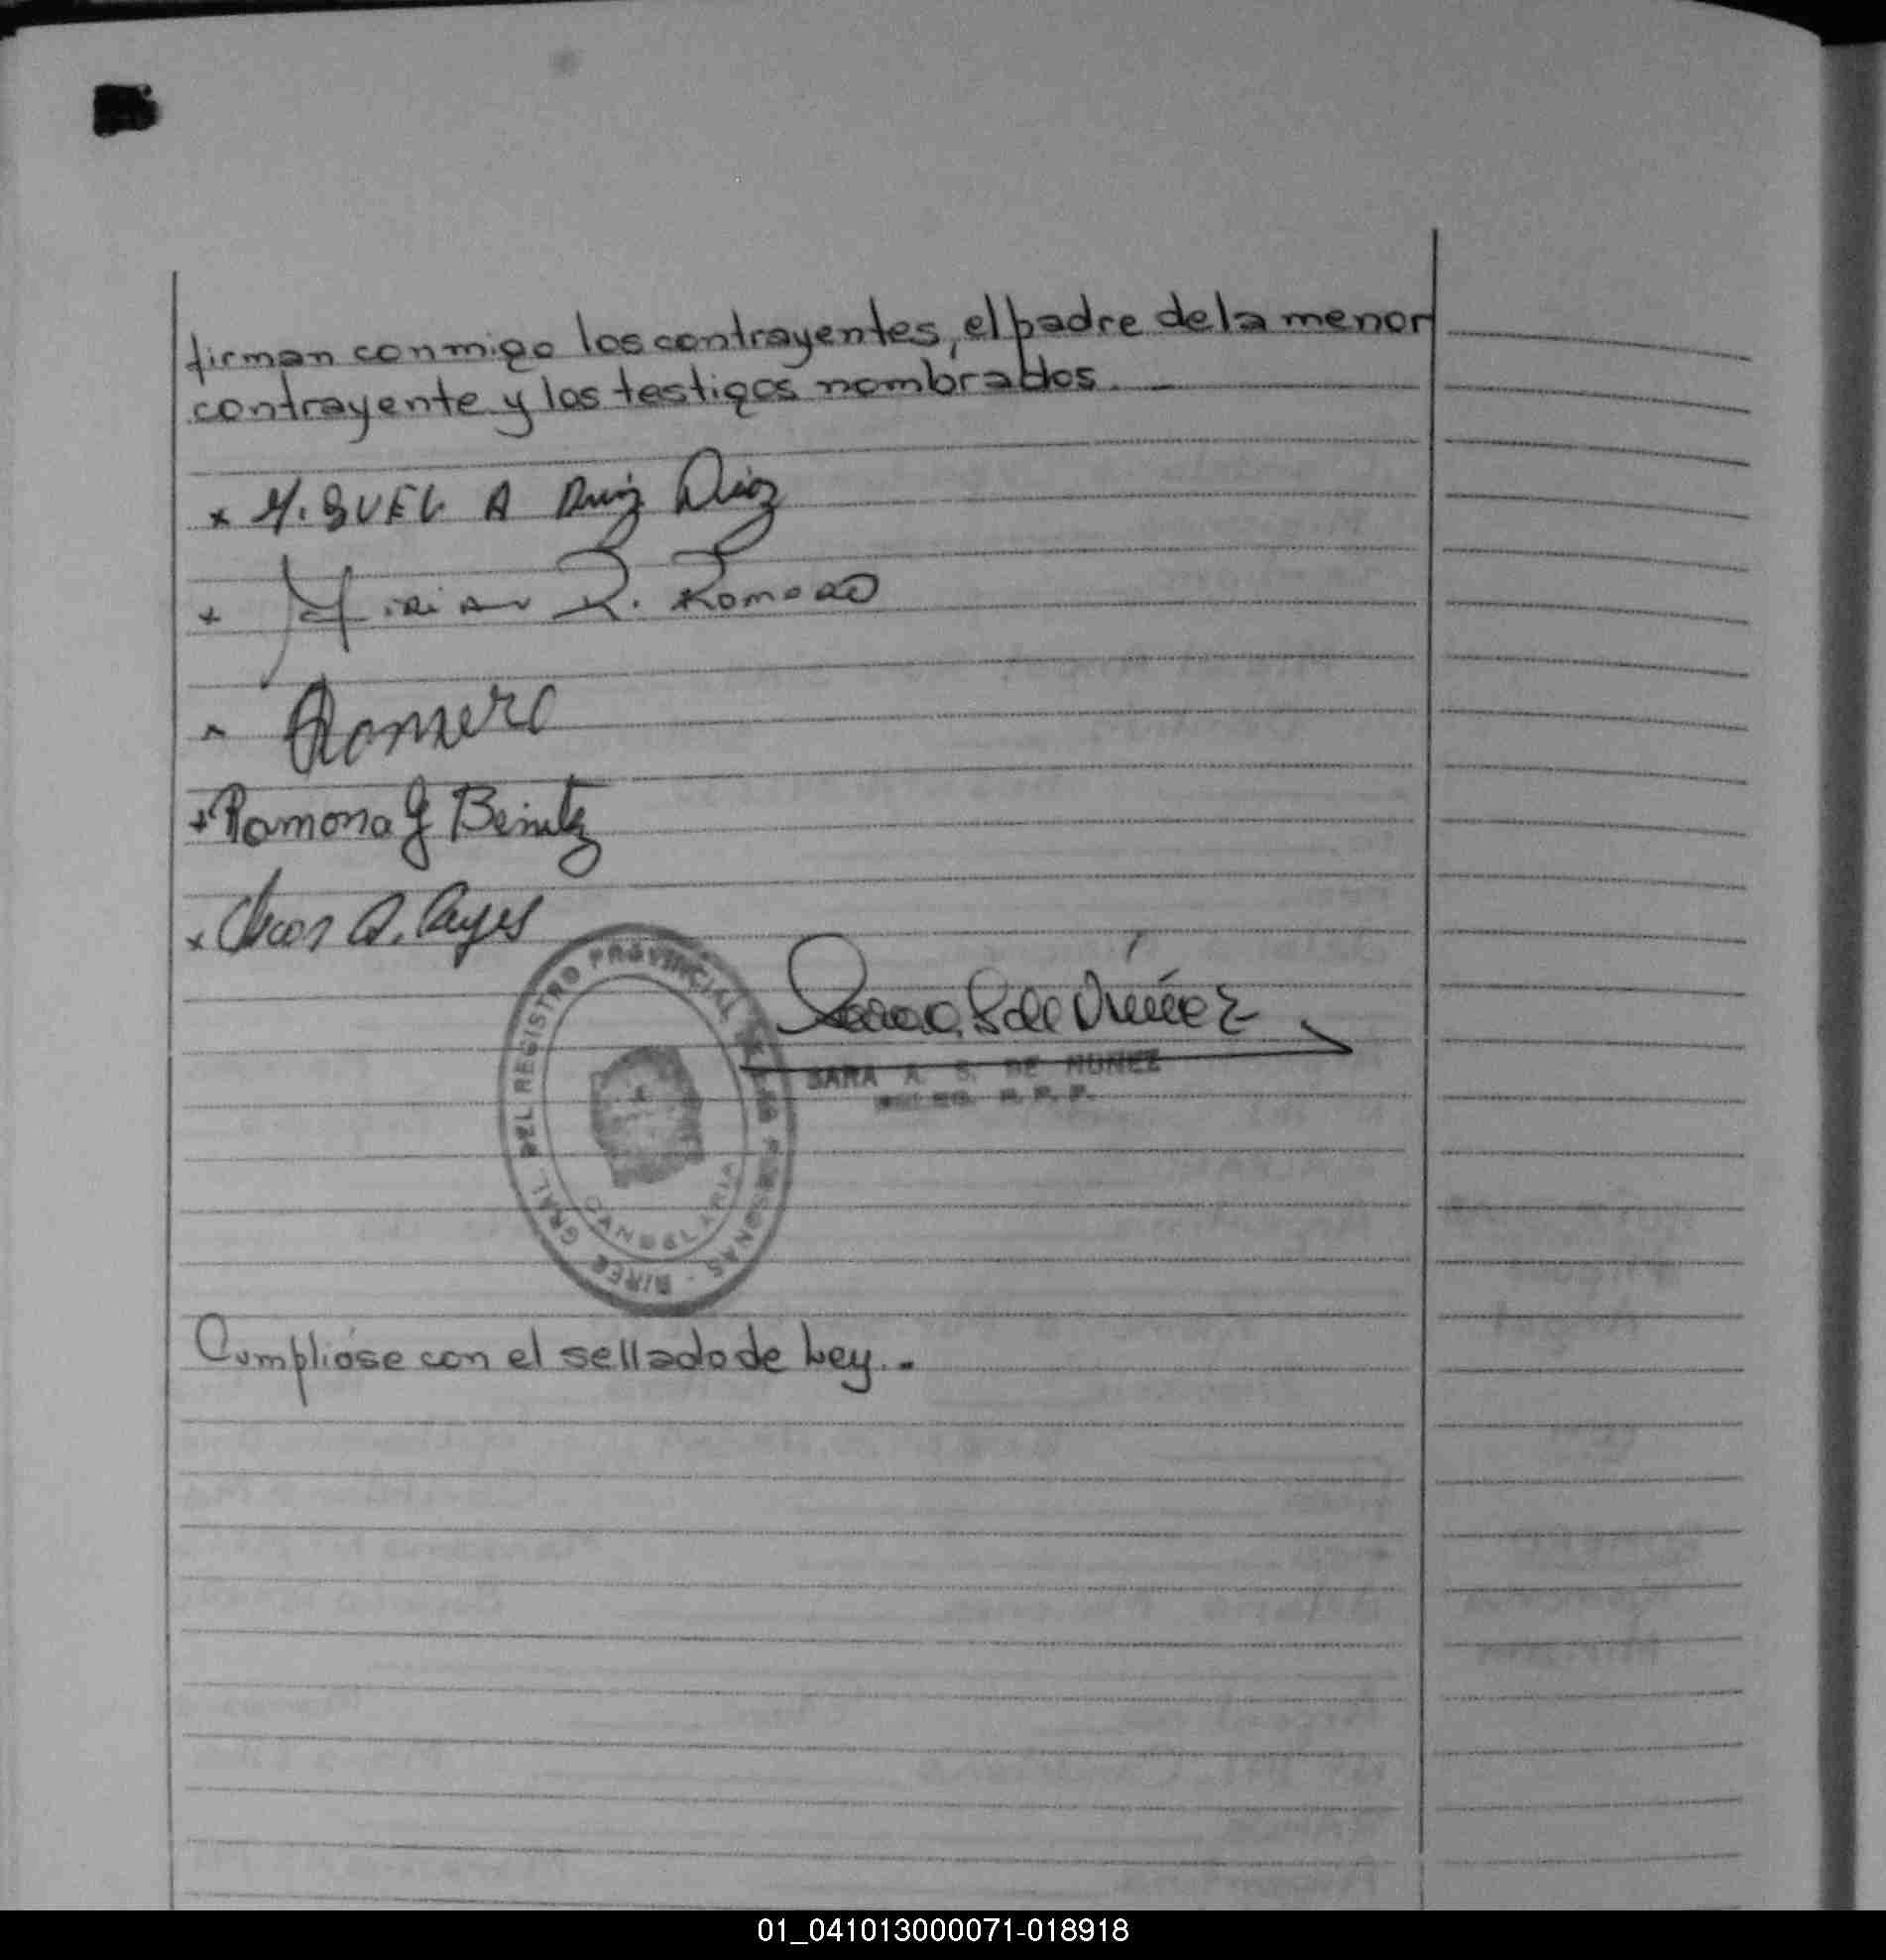 firman conmigo los contrayentes, el padre de la menor
contrayente y los testigos nombrados.
x MIGUEL A Ruiz Diaz
x Mirian R. Romero
x Romero
x Ramona G Benitez
x A. Reyes
Sara S de Núñez
SARA A. S. DE NUÑEZ
R. P. P.
DIREC. GRAL. DEL REGISTRO PROVINCIAL DE LAS PERSONAS -
CANDELARIA
Cumplióse con el sellado de Ley.-
01_041013000071-018918